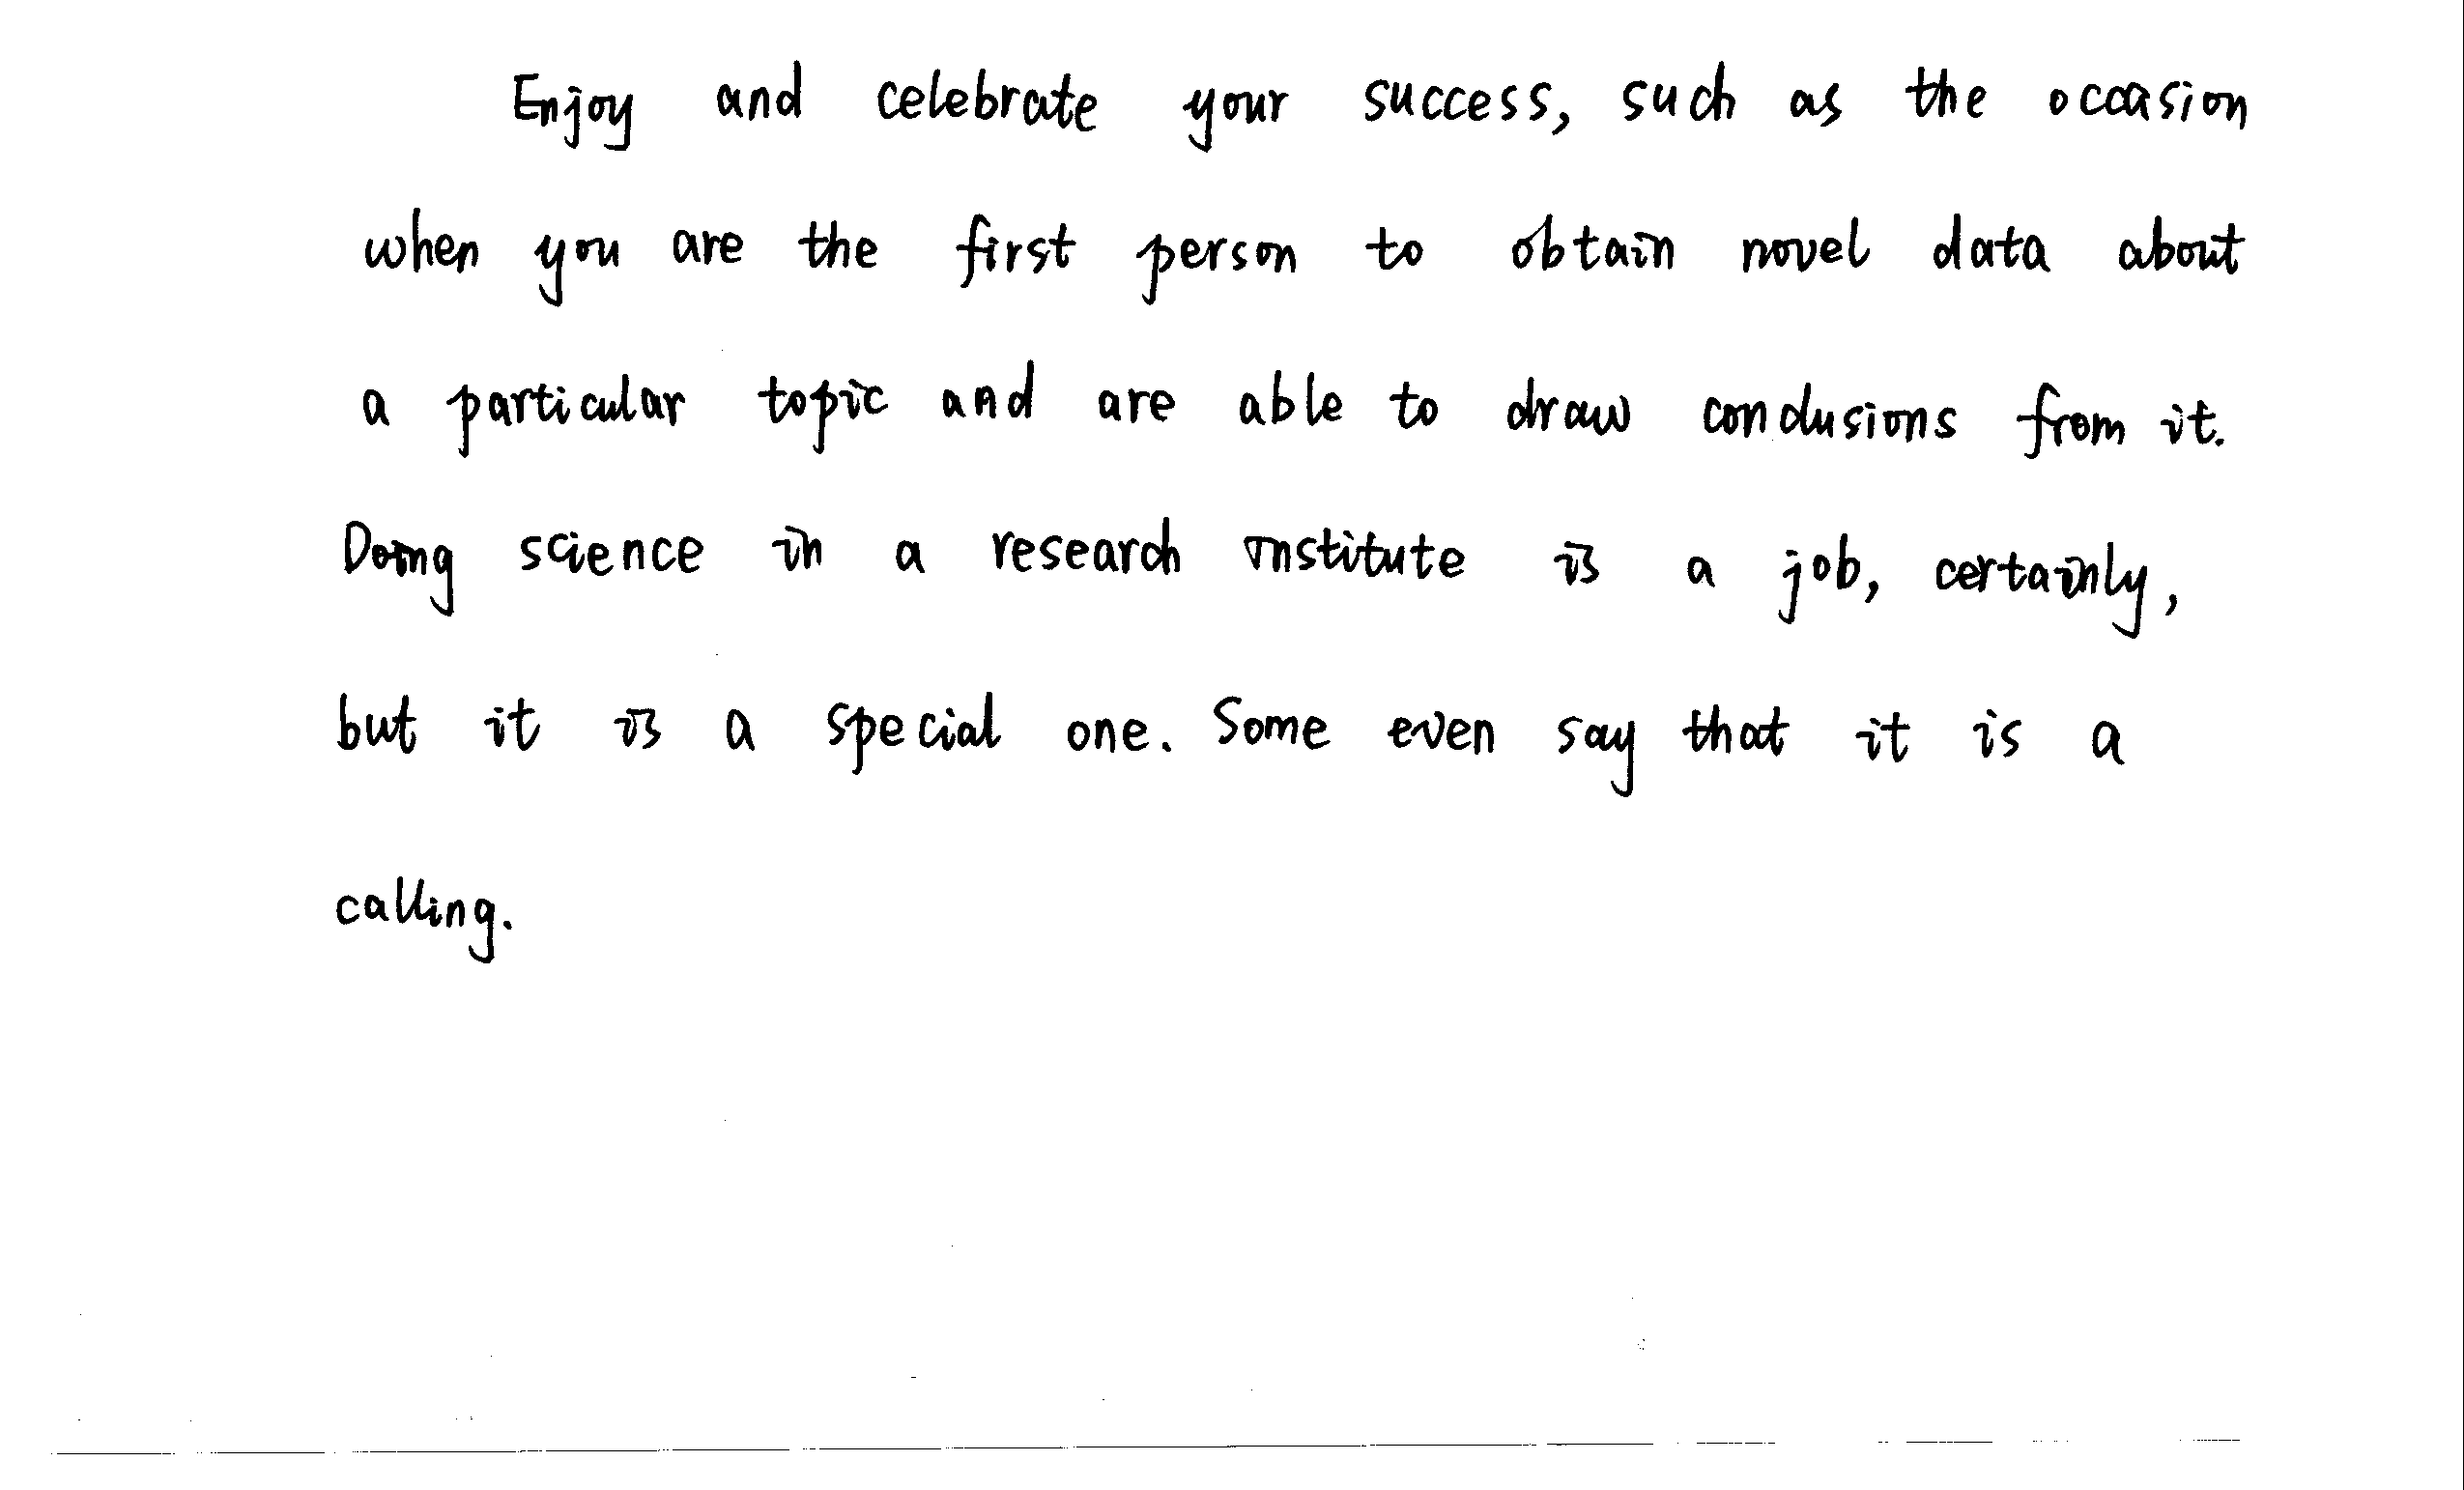 Enjoy and celebrate your success, such as the occasion
when you are the first person to obtain novel data about
a particular topic and are able to draw conclusions from it.
Doing science in a research institute is a job, certainly,
but it is a special one. Some even say that it is a
calling.